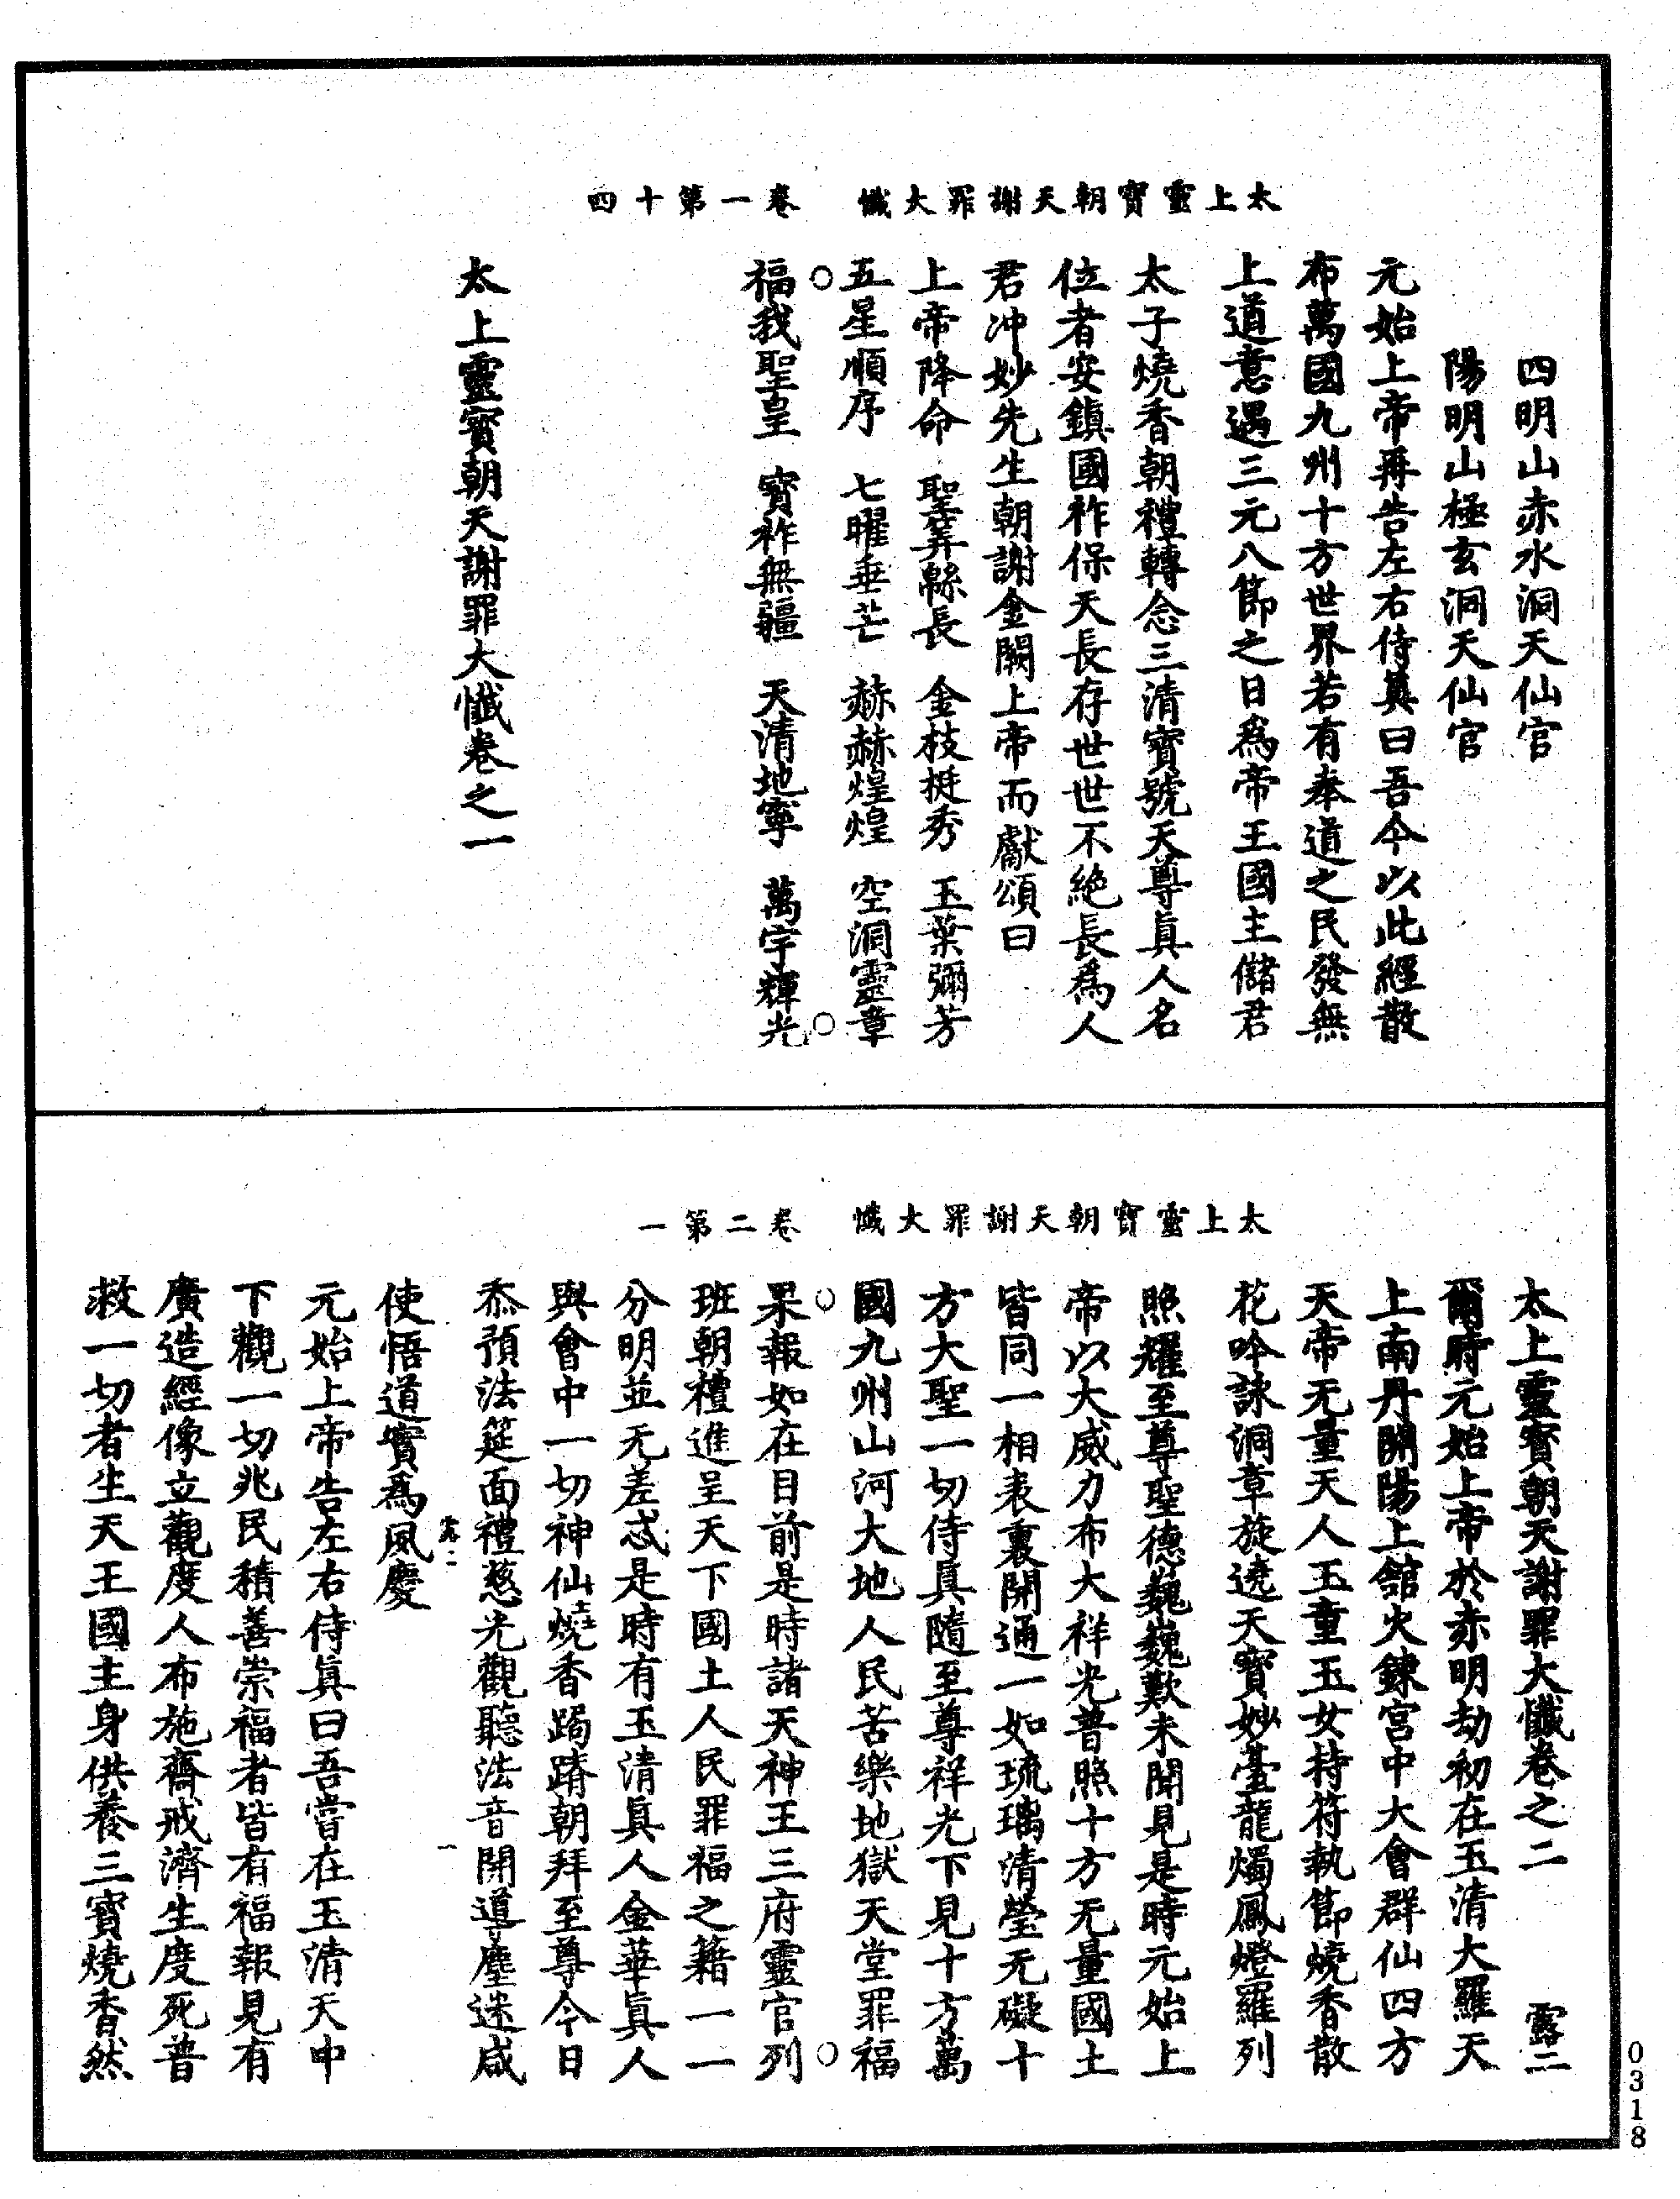 太上靈寶朝天謝罪大懺　卷一第十四
四明山赤水洞天仙官
陽明山極玄洞天仙官
元始上帝再告左右侍眞曰吾今以此經散
布萬國九州十方世界若有奉道之民發無
上道意遇三元八節之日爲帝王國主儲君
太子燒香朝禮轉念三清寶號天尊眞人名
位者安鎮國祚保天長存世世不絕長爲人
君冲妙先生朝謝金闕上帝而獻頌曰
上帝降命　聖筭緜長　金枝挺秀　玉葉彌芳
五星順序　七曜垂芒　赫赫煌煌　空洞靈章
福我聖皇　寶祚無疆　天清地寧　萬宇輝光
太上靈寶朝天謝罪大懺卷之一
太上靈寶朝天謝罪大懺　卷二第一
太上靈寶朝天謝罪大懺卷之二　露二
爾時元始上帝於赤明劫初在玉清大羅天
上南丹開陽上舘火鍊宮中大會群仙四方
天帝无量天人玉童玉女持符執節燒香散
花吟詠洞章旋遶天寶妙臺龍燭鳳燈羅列
照耀至尊聖德巍巍歎未聞見是時元始上
帝以大威力布大祥光普照十方无量國土
皆同一相表裏開通一如琉璃清瑩无礙十
方大聖一切侍眞隨至尊祥光下見十方萬
國九州山河大地人民苦樂地獄天堂罪福
果報如在目前是時諸天神王三府靈官列
班朝禮進呈天下國土人民罪福之籍一一
分明並无差忒是時有玉清眞人金華眞人
與會中一切神仙燒香跼蹐朝拜至尊今日
忝預法筵面禮慈光觀聽法音開導塵迷咸
露二　一
使悟道實爲風慶
元始上帝告左右侍眞曰吾嘗在玉清天中
下觀一切兆民積善崇福者皆有福報見有
廣造經像立觀度人布施齋戒濟生度死普
救一切者生天王國主身供養三寶燒香然
0318